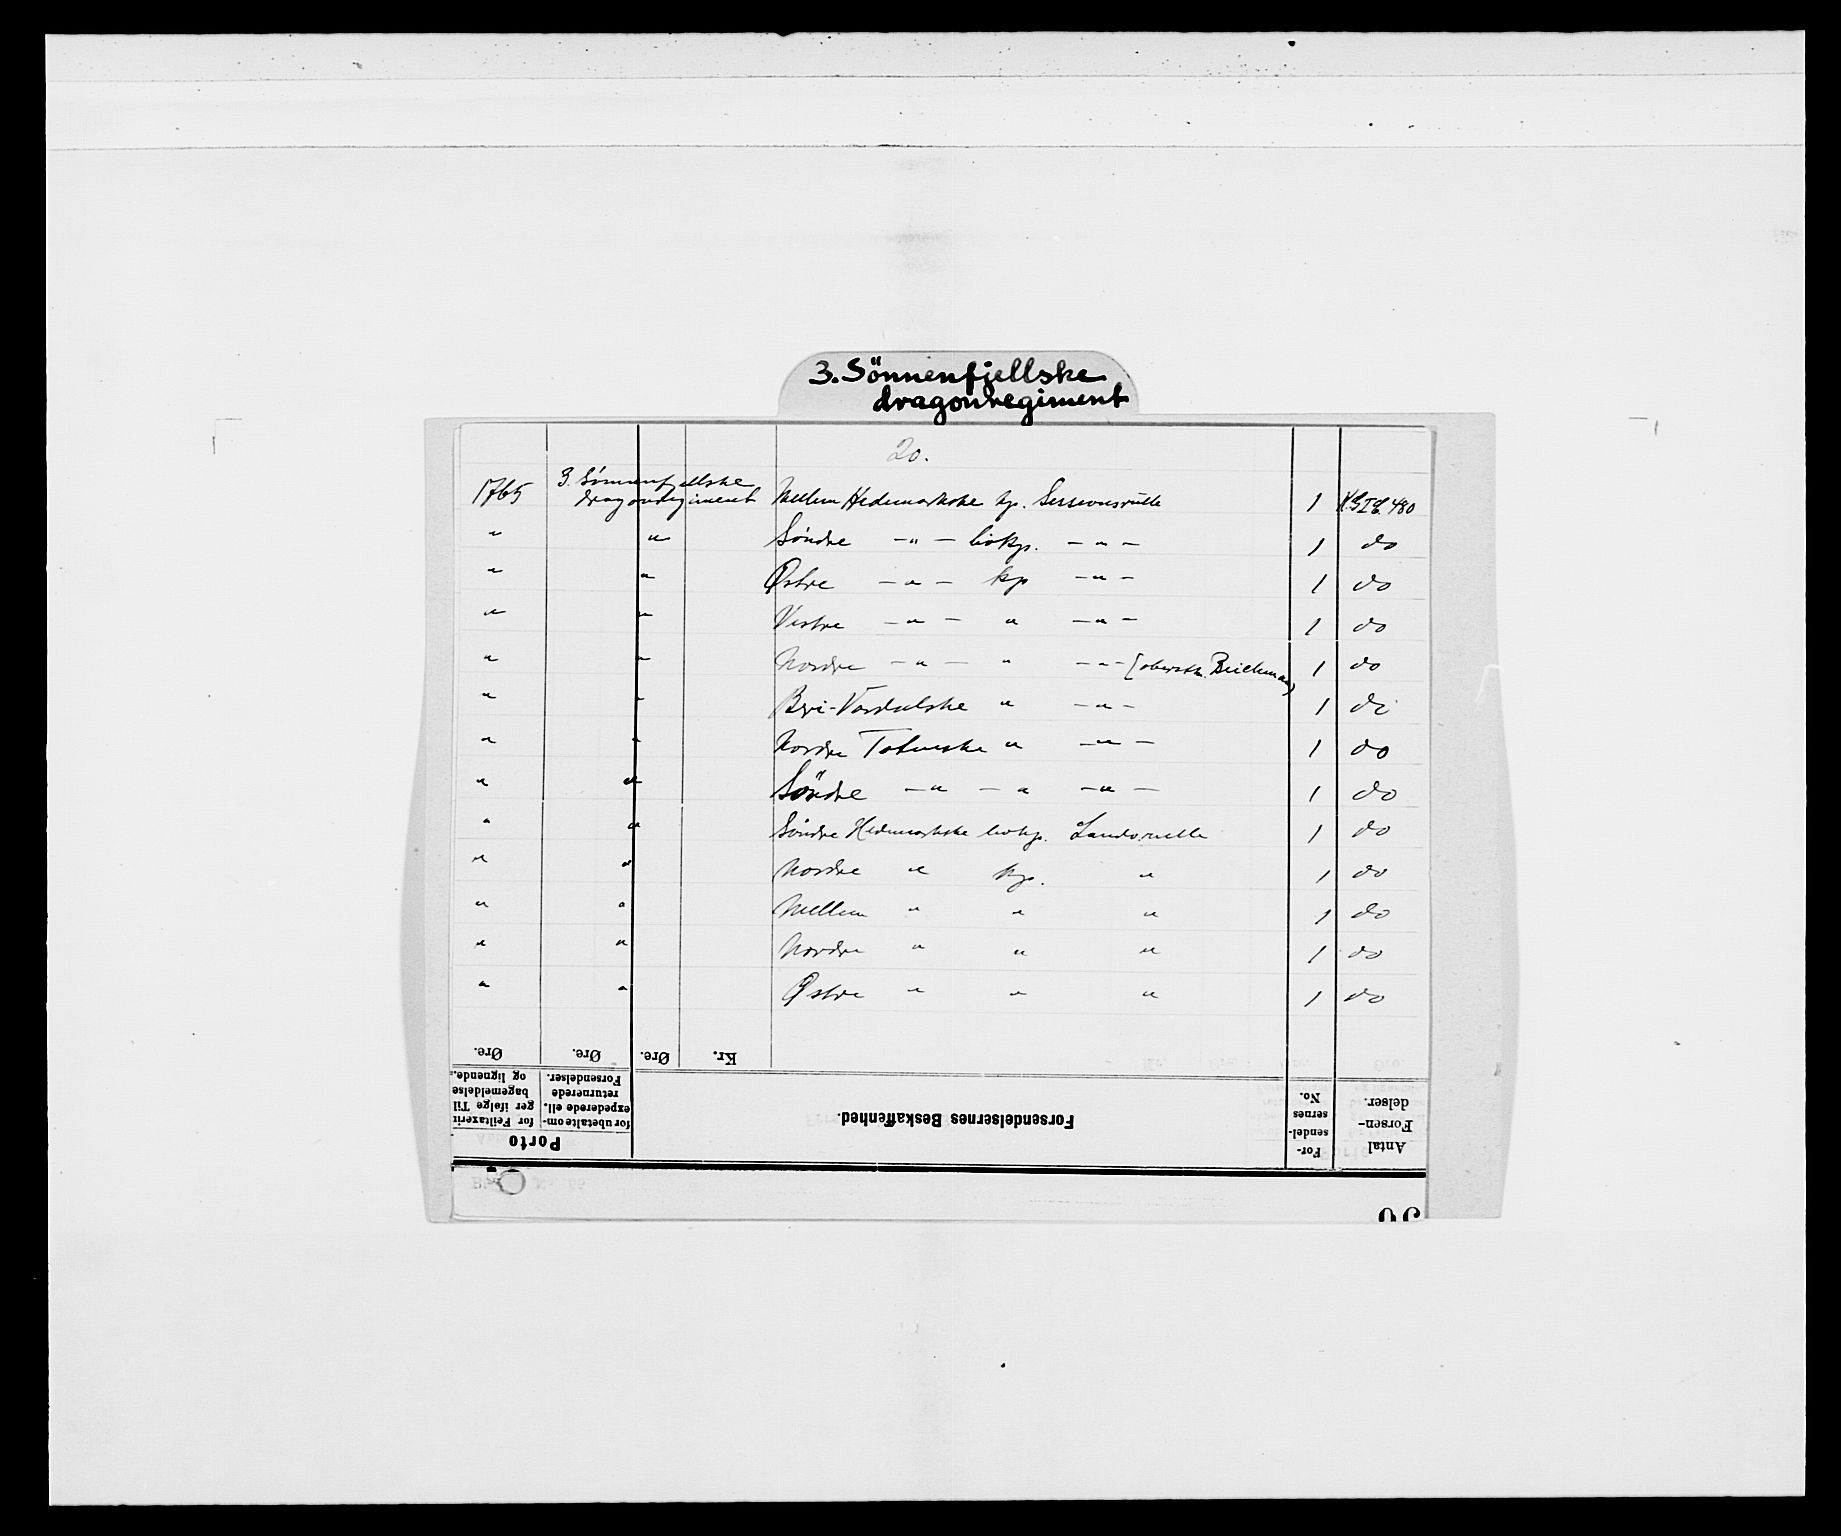 3. Sönnenfjellske
dragonregiment
20.
1765 3. Sönnenfjellske dragonregiment Mellem Hedemarkske kp. Sessionsrulle 1 K.G.I.E. 480
" " Söndre —"— livkp. —"— 1 do
" " Østre —"— kp —"— 1 do
" " Vestre —"— " —"— 1 do
" " Nordre —"— " —"— (oberstl. Beichmann) 1 do
" " Biri-Vardalske " —"— 1 do
" " Nordre Totenske " —"— 1 do
" " Söndre —"— " —"— 1 do
" " Söndre Hedemarkske livkp. Landsrulle 1 do
" " Nordre " kp. " 1 do
" " Mellem " " " 1 do
" " Nordre " " " 1 do
" " Østre " " " 1 do
Øre. Øre. Øre. Kr.
Porto
for Feiltaxerin
ger ifølge Til
bagemeldelse
og lignende.
for ubetalte om-
expederede ell.
returnerede
Forsendelser.
Forsendelsernes Beskaffenhed.
For-
sendel-
sernes
No.
Antal
Forsen-
delser.